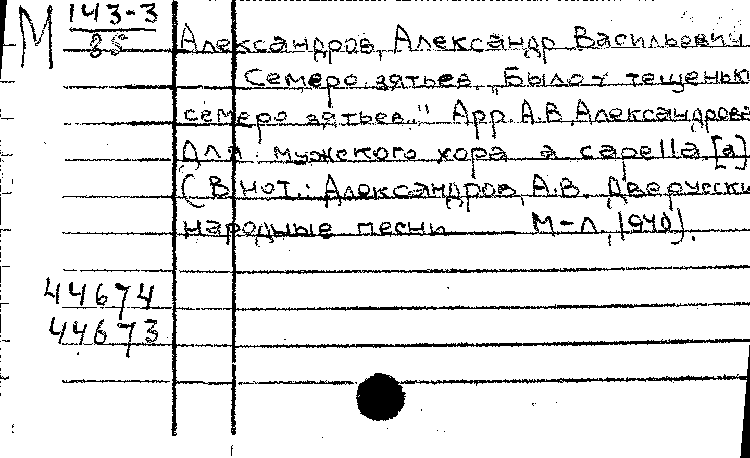 М 143-3
85
Александров, Александр Васильевич
Семеро зятьев. „Было у тещеньк
семеро зятьев..." Арр. А.В. Александрова
для мужского хора a capella [a]
(В нот.: Александров, А.В. Две русски
народные песни М-Л, 1940).
44674
44673